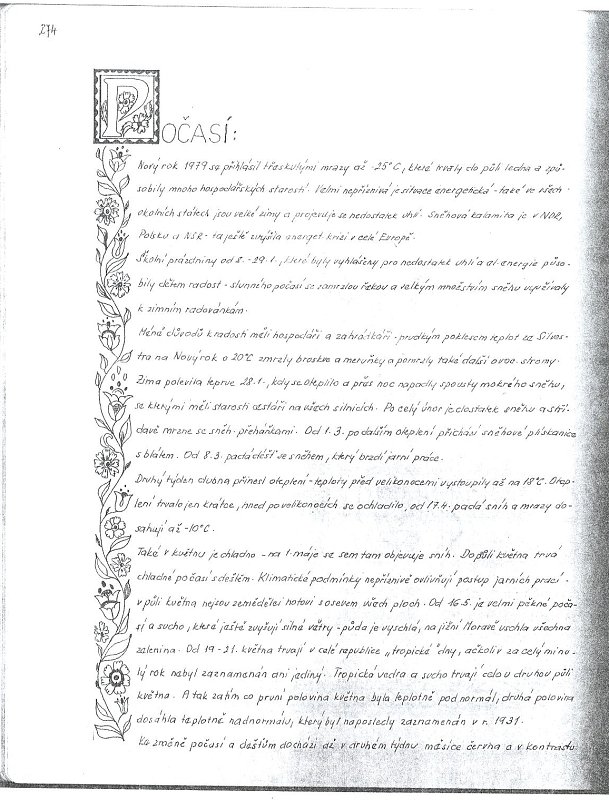 274
POČASÍ:
Nový rok 1979 se přihlásil třeskutými mrazy až -25°C, které trvaly do půli ledna a způ-
sobily mnoho hospodářských starostí. Velmi nepříznivá je situace energetická - také ve všech
okolních státech jsou velké zimy a projevuje se nedostatek uhlí. Sněhová kalamita je v NDR,
Polsku a NSR - ta ještě zvýšila energet. krizi v celé Evropě.
Školní prázdniny od 8. - 29.1., které byly vyhlášeny pro nedostatek uhlí a el. energie působ-
bily dětem radost - slunného počasí se zamrzlou řekou a velkým množstvím sněhu využívaly
k zimním radovánkám.
Méně důvodů k radosti měli hospodáři a zahrádkáři - prudkým poklesem teplot ze Silves-
tra na Nový rok o 20°C zmrzly broskve a meruňky a pomrzly také další ovoc. stromy.
Zima polevila teprve 28.1., kdy se oteplilo a přes noc napadly spousty mokrého sněhu,
se kterými měli starosti cestáři na všech silnicích. Po celý únor je dostatek sněhu a stří-
davě mrzne se sněh. přeháňkami. Od 1.3. po dalším oteplení přichází sněhové plískanice
s blátem. Od 8.3. padá déšť se sněhem, který brzdí jarní práce.
Druhý týden dubna přinesl oteplení - teploty před velikonocemi vystoupily až na 18°C. Otep-
lení trvalo jen krátce, hned po velikonocích se ochladilo, od 17.4. padá sníh a mrazy do-
sahují až -10°C.
Také v květnu je chladno - na 1. máje se sem tam objevuje sníh. Do půli května trvá
chladné počasí s deštěm. Klimatické podmínky nepříznivě ovlivňují postup jarních prací -
v půli května nejsou zemědělci hotovi s osevem všech ploch. Od 16.5. je velmi pěkné poča-
sí a sucho, které ještě zvyšují silné větry - půda je vyschlá, na jižní Moravě uschla všechna
zelenina. Od 19 - 21. května trvají v celé republice „tropické" dny, ačkoliv za celý minu-
lý rok nebyl zaznamenán ani jediný. Tropická vedra a sucho trvají celou druhou půli
května. A tak zatím co první polovina května byla teplotně pod normál, druhá polovina
dosáhla teplotně nadnormálu, který byl naposledy zaznamenán v r. 1931.
Ke změně počasí a dešťům dochází až v druhém týdnu měsíce června a v kontrastu